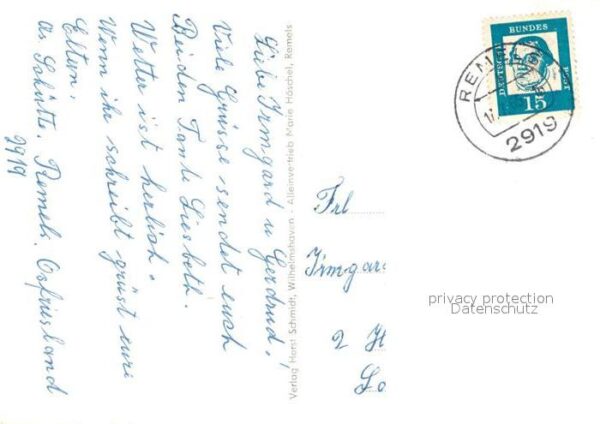 Liebe Irmgard u Gerdrud!
Viele Grüsse sendet euch
Beiden Tante Liesbeth.
Wetter ist herlich.
Wenn ihr schreibt grüst eure
Eltern.
A. Schütte. Remels. Ostfriesland
2919
Verlag Horst Schmidt, Wilhelmshaven - Alleinvertrieb Marie Höschel, Remels
DEUTSCHE
BUNDES
POST
15
REMELS
2919
Frl
Irmgar
2 H
privacy protection
Datenschutz